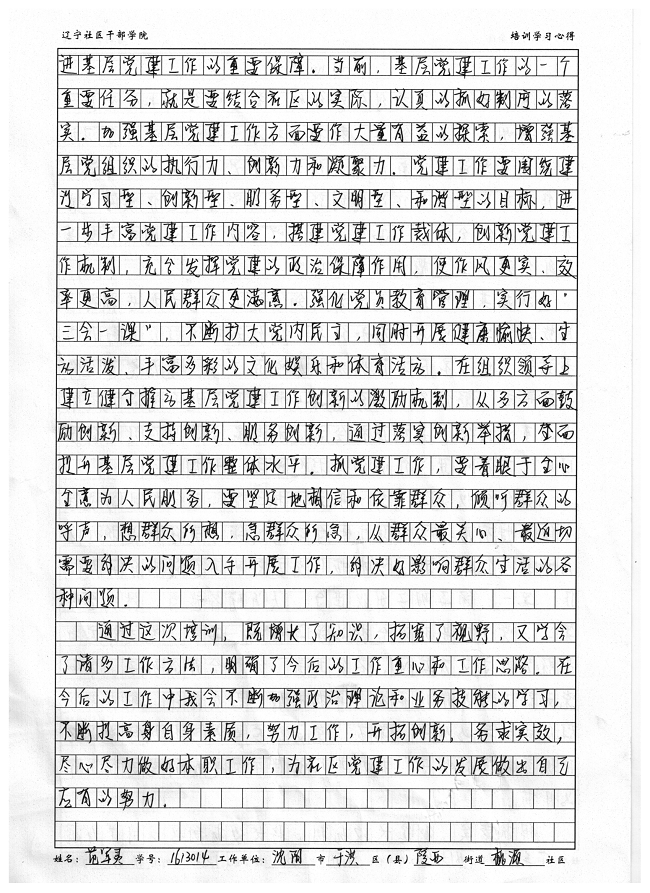 辽宁社区干部学院 培训学习心得
进基层党建工作的重要保障。当前，基层党建工作的一个
重要任务，就是要结合社区的实际，认真的抓好制度的落
实。加强基层党建工作方面要作大量有益的探索，增强基
层党组织的执行力、创新力和凝聚力。党建工作要围绕建
设学习型、创新型、服务型、文明型、和谐型的目标，进
一步丰富党建工作内容，搭建党建工作载体，创新党建工
作机制，充分发挥党建的政治保障作用，使作风更实、效
率更高，人民群众更满意。强化党员教育管理，实行好“
三会一课”，不断扩大党内民主，同时开展健康愉快、生
动活泼、丰富多彩的文化娱乐和体育活动。在组织领导上
建立健全推动基层党建工作创新的激励机制，从多方面鼓
励创新、支持创新、服务创新，通过落实创新举措，全面
提升基层党建工作整体水平。抓党建工作，要着眼于全心
全意为人民服务，要坚定地相信和依靠群众，倾听群众的
呼声，想群众所想，急群众所急，从群众最关心、最迫切
需要解决的问题入手开展工作，解决好影响群众生活的各
种问题。
通过这次培训，既增长了知识，拓宽了视野，又学会
了诸多工作方法，明确了今后的工作重心和工作思路。在
今后的工作中我会不断加强政治理论和业务技能的学习，
不断提高身自身素质，努力工作，开拓创新，务求实效，
尽心尽力做好本职工作，为社区党建工作的发展做出自己
应有的努力。
姓名： 学号：1613014 工作单位：沈阳 市 于洪 区（县） 陵西 街道 社区